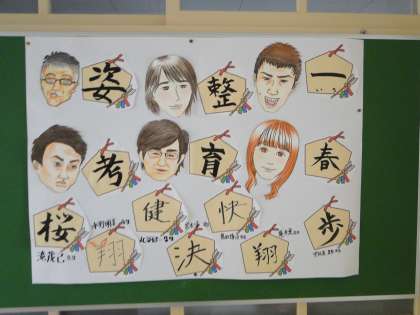 姿 整 一
考 育 春
桜 健 快 歩
翔 決 翔